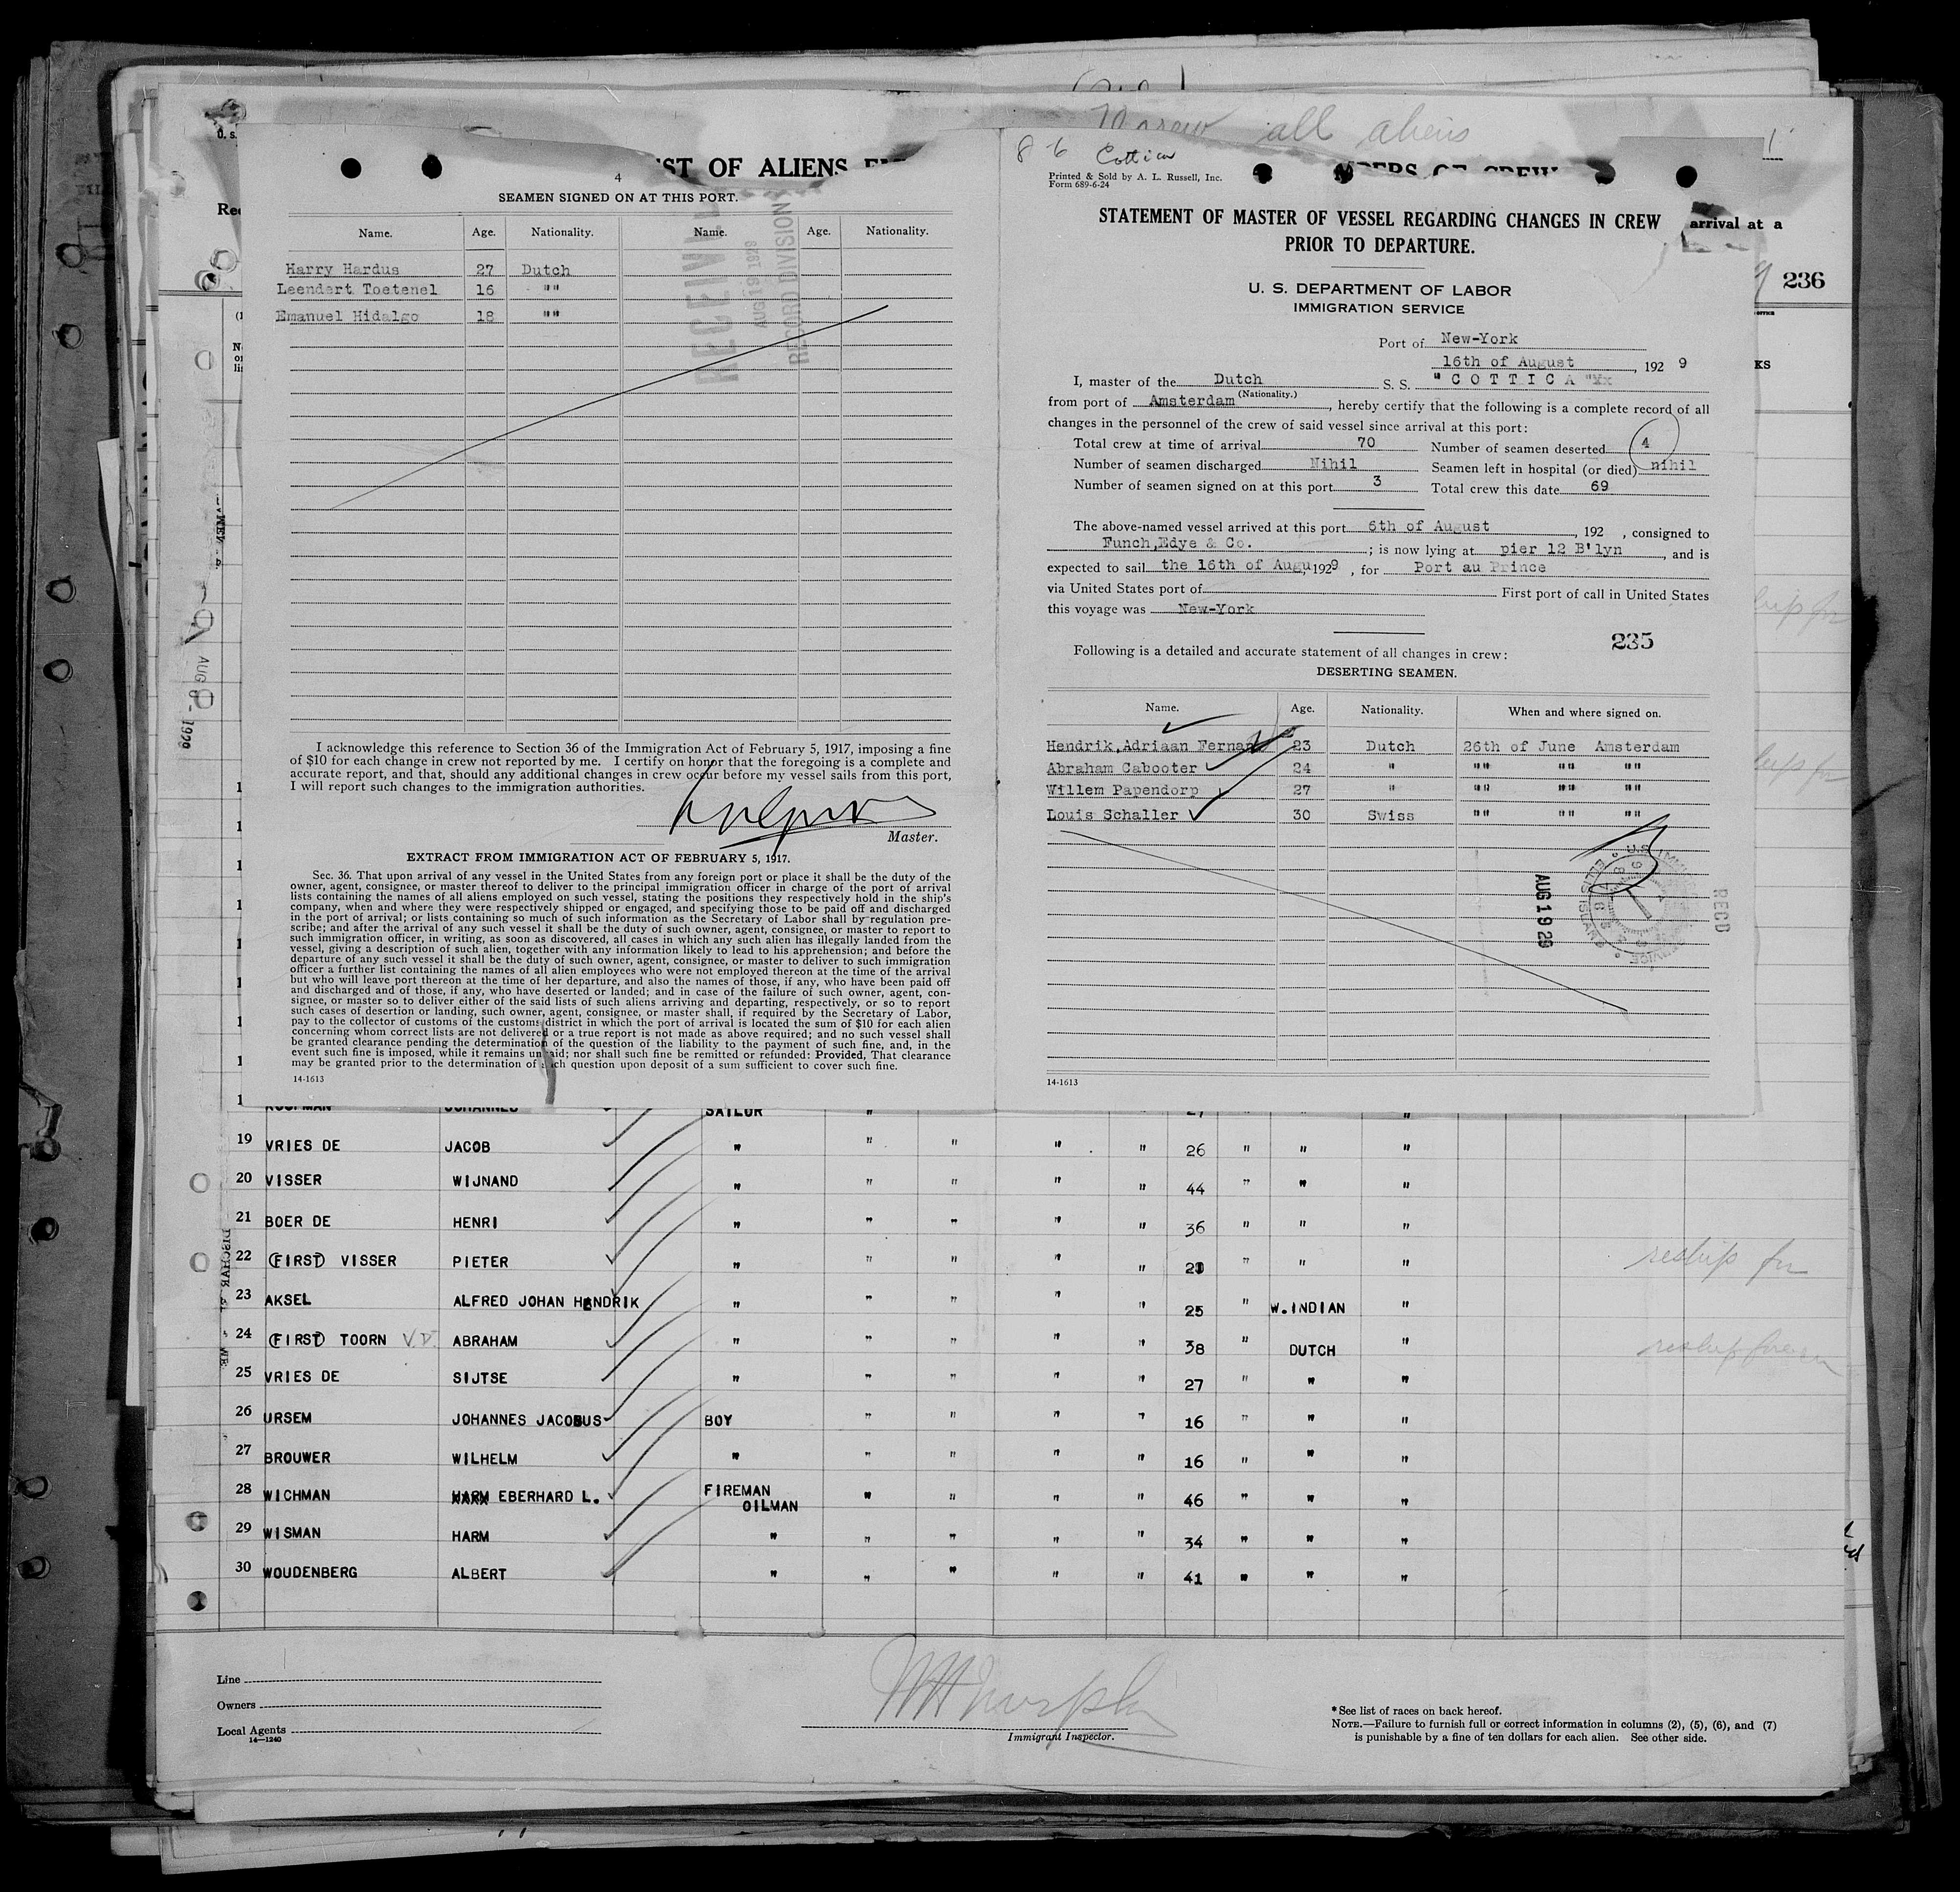 all aliens
8-6 Cottica
U. S.
LIST OF ALIENS
MBERS OF CREW
arrival at a
236
KS
4
SEAMEN SIGNED ON AT THIS PORT.
Name. Age. Nationality. Name. Age. Nationality.
Harry Hardus 27 Dutch
Leendert Toetenel 16 " "
Emanuel Hidalgo 18 " "
RECEIVED
AUG 19 1929
RECORD DIVISION
I acknowledge this reference to Section 36 of the Immigration Act of February 5, 1917, imposing a fine
of $10 for each change in crew not reported by me. I certify on honor that the foregoing is a complete and
accurate report, and that, should any additional changes in crew occur before my vessel sails from this port,
I will report such changes to the immigration authorities.
Master.
EXTRACT FROM IMMIGRATION ACT OF FEBRUARY 5, 1917.
Sec. 36. That upon arrival of any vessel in the United States from any foreign port or place it shall be the duty of the
owner, agent, consignee, or master thereof to deliver to the principal immigration officer in charge of the port of arrival
lists containing the names of all aliens employed on such vessel, stating the positions they respectively hold in the ship's
company, when and where they were respectively shipped or engaged, and specifying those to be paid off and discharged
in the port of arrival; or lists containing so much of such information as the Secretary of Labor shall by regulation pre-
scribe; and after the arrival of any such vessel it shall be the duty of such owner, agent, consignee, or master to report to
such immigration officer, in writing, as soon as discovered, all cases in which any such alien has illegally landed from the
vessel, giving a description of such alien, together with any information likely to lead to his apprehension; and before the
departure of any such vessel it shall be the duty of such owner, agent, consignee, or master to deliver to such immigration
officer a further list containing the names of all alien employees who were not employed thereon at the time of the arrival
but who will leave port thereon at the time of her departure, and also the names of those, if any, who have been paid off
and discharged and of those, if any, who have deserted or landed; and in case of the failure of such owner, agent, con-
signee, or master so to deliver either of the said lists of such aliens arriving and departing, respectively, or so to report
such cases of desertion or landing, such owner, agent, consignee, or master shall, if required by the Secretary of Labor,
pay to the collector of customs of the customs district in which the port of arrival is located the sum of $10 for each alien
concerning whom correct lists are not delivered or a true report is not made as above required; and no such vessel shall
be granted clearance pending the determination of the question of the liability to the payment of such fine, and, in the
event such fine is imposed, while it remains unpaid; nor shall such fine be remitted or refunded: Provided, That clearance
may be granted prior to the determination of such question upon deposit of a sum sufficient to cover such fine.
14-1613
Printed & Sold by A. L. Russell, Inc.
Form 689-6-24
STATEMENT OF MASTER OF VESSEL REGARDING CHANGES IN CREW
PRIOR TO DEPARTURE.
U. S. DEPARTMENT OF LABOR
IMMIGRATION SERVICE
Port of New-York
16th of August, 192 9
I, master of the Dutch S. S. "C O T T I C A "
(Nationality.)
from port of Amsterdam, hereby certify that the following is a complete record of all
changes in the personnel of the crew of said vessel since arrival at this port:
Total crew at time of arrival 70 Number of seamen deserted 4
Number of seamen discharged Nihil Seamen left in hospital (or died) nihil
Number of seamen signed on at this port 3 Total crew this date 69
The above-named vessel arrived at this port 6th of August, 192 , consigned to
Funch,Edye & Co. ; is now lying at pier 12 B'lyn, and is
expected to sail the 16th of Augu, 1929 , for Port au Prince
via United States port of First port of call in United States
this voyage was New-York
235
Following is a detailed and accurate statement of all changes in crew:
DESERTING SEAMEN.
Name. Age. Nationality. When and where signed on.
Hendrik,Adriaan Fernan 23 Dutch 26th of June Amsterdam
Abraham Cabooter 24 " "" "" ""
Willem Papendorp 27 " "" "" ""
Louis Schaller 30 Swiss "" "" ""
AUG 19 29
U.S. IMMIGRATION SERVICE ELLIS ISLAND
RECD
14-1613
AUG 8 - 1929
KOOPMAN JOHANNES SAILOR " 27 " "
19 VRIES DE JACOB " " " " " 26 " " "
20 VISSER WIJNAND " " " " " 44 " " "
21 BOER DE HENRI " " " " " 36 " " "
22 (FIRST) VISSER PIETER " " " " " " " " reship for
23 AKSEL ALFRED JOHAN HENDRIK " " " " " 25 " W.INDIAN "
24 (FIRST) TOORN V.D. ABRAHAM " " " " " 38 " DUTCH " reship foreign
25 VRIES DE SIJTSE " " " " " 27 " " "
26 URSEM JOHANNES JACOBUS BOY " " " " 16 " " "
27 BROUWER WILHELM " " " " " 16 " " "
28 WICHMAN HARM EBERHARD L. FIREMAN OILMAN " " " " 46 " " "
29 WISMAN HARM " " " " " 34 " " "
30 WOUDENBERG ALBERT " " " " " 41 " " "
Line
Owners
Local Agents
14—1240
Immigrant Inspector.
* See list of races on back hereof.
NOTE.—Failure to furnish full or correct information in columns (2), (5), (6), and (7)
is punishable by a fine of ten dollars for each alien. See other side.